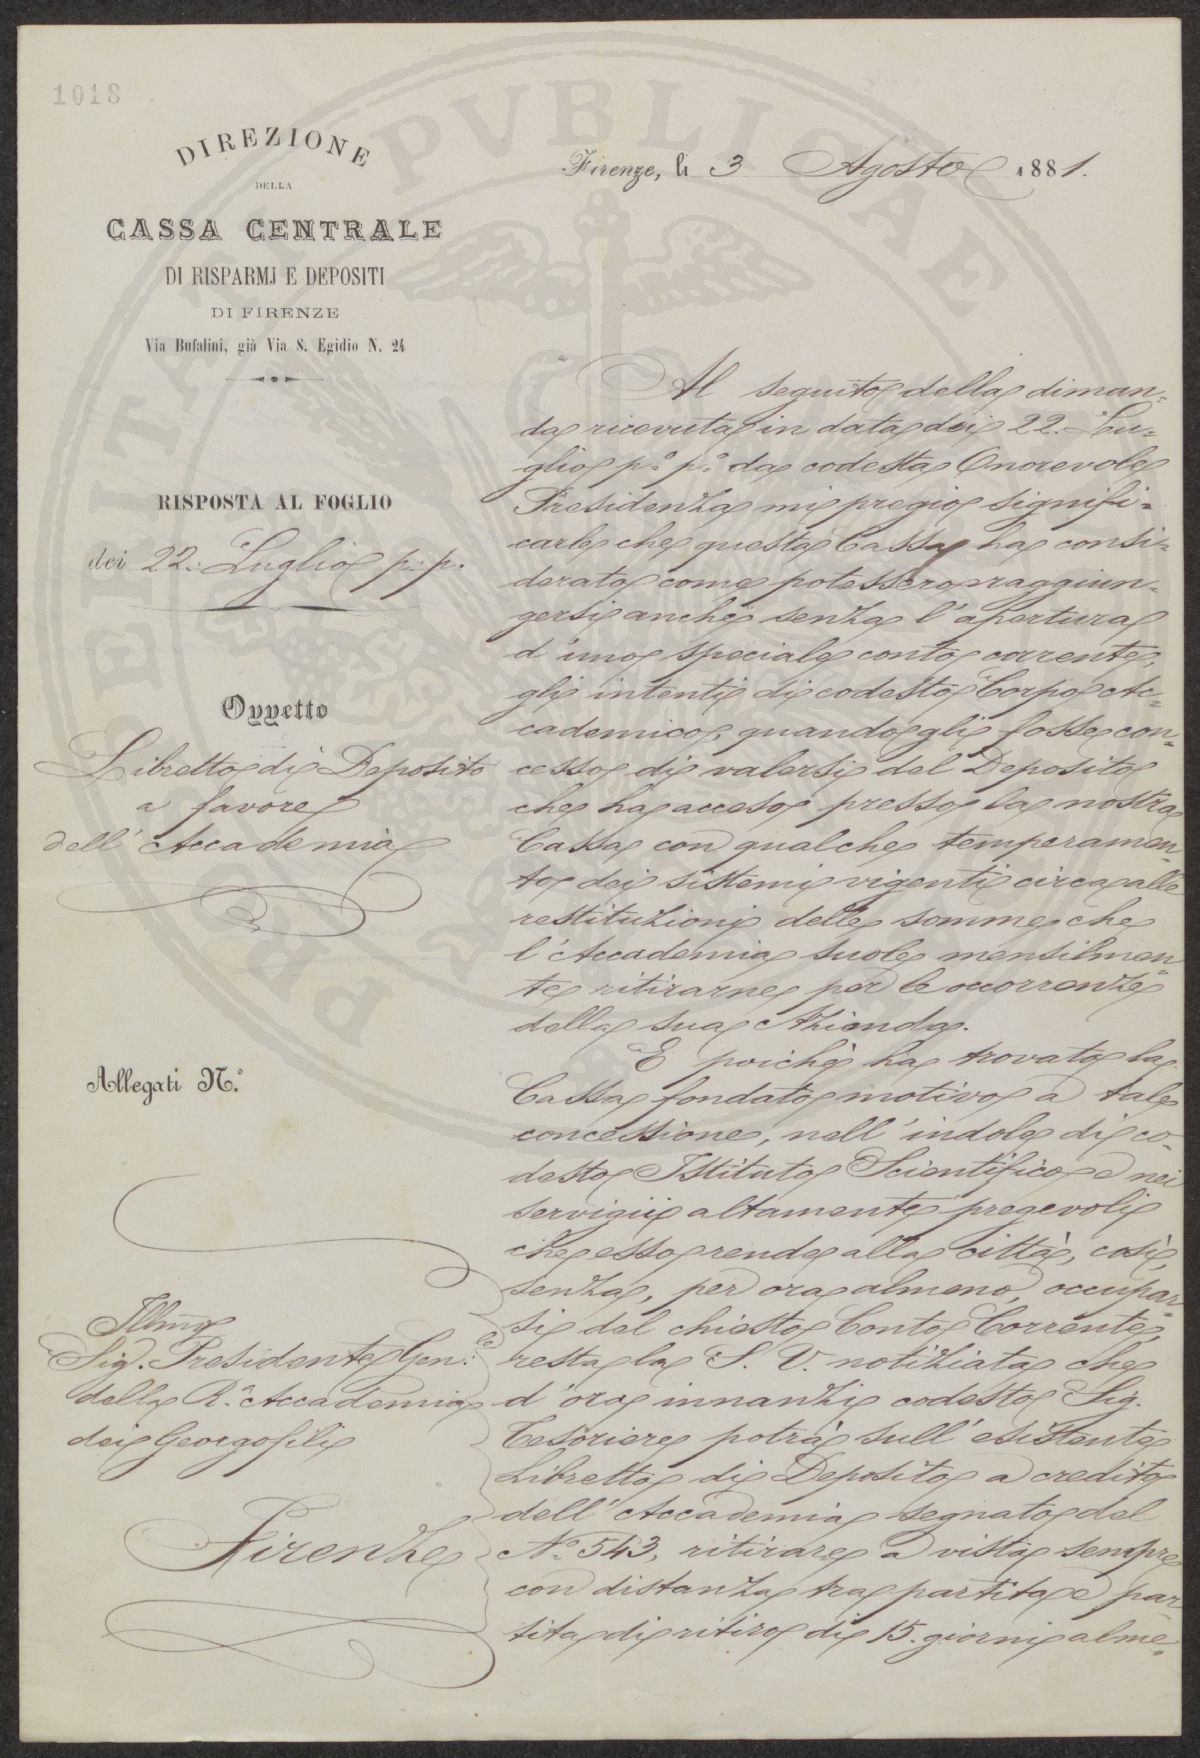 1018
DIREZIONE
DELLA
CASSA CENTRALE
DI RISPARMJ E DEPOSITI
DI FIRENZE
Via Bufalini, già Via S. Egidio N. 24
RISPOSTA AL FOGLIO
dei 22. Luglio p. p.
Oggetto
Libretto di Deposito
a favore
dell' Accademia
Allegati N.°
Illmo
Sig. Presidente Gen.le
della R. Accademia
dei Georgofili
Firenze
Firenze, li 3 Agosto 1881.
Al seguito della diman=
da ricevuta in data dei 22. Lu=
glio p.° p.° da codesta Onorevole
Presidenza mi pregio signifi=
carle che questa Cassa ha consi=
derato come potessero raggiun=
gersi anche senza l'apertura
d'uno speciale conto corrente,
gli intenti di codesto Corpo Ac=
cademico, quando gli fosse con=
cesso di valersi del Deposito
che ha acceso presso la nostra
Cassa con qualche temperamen=
to dei sistemi vigenti circa alle
restituzioni delle somme che
l'Accademia suole mensilmen=
te ritirarne per le occorrenze
della sua Azienda.
E poichè ha trovato la
Cassa fondato motivo a tale
concessione, nell'indole di co=
desto Istituto Scientifico e nei
servigii altamente pregevoli
che esso rende alla città, così,
senza, per ora almeno, occupar=
si del chiesto Conto Corrente,
resta la S. V. notiziata che
d'ora innanzi codesto Sig.
Tesoriere potrà sull'esistente
Libretto di Deposito a credito
dell'Accademia segnato del
N.° 543, ritirare a vista sempre
con distanza tra partita e par
tita di ritiro di 15. giorni alme=
PROSPERITATI PVBLICAE